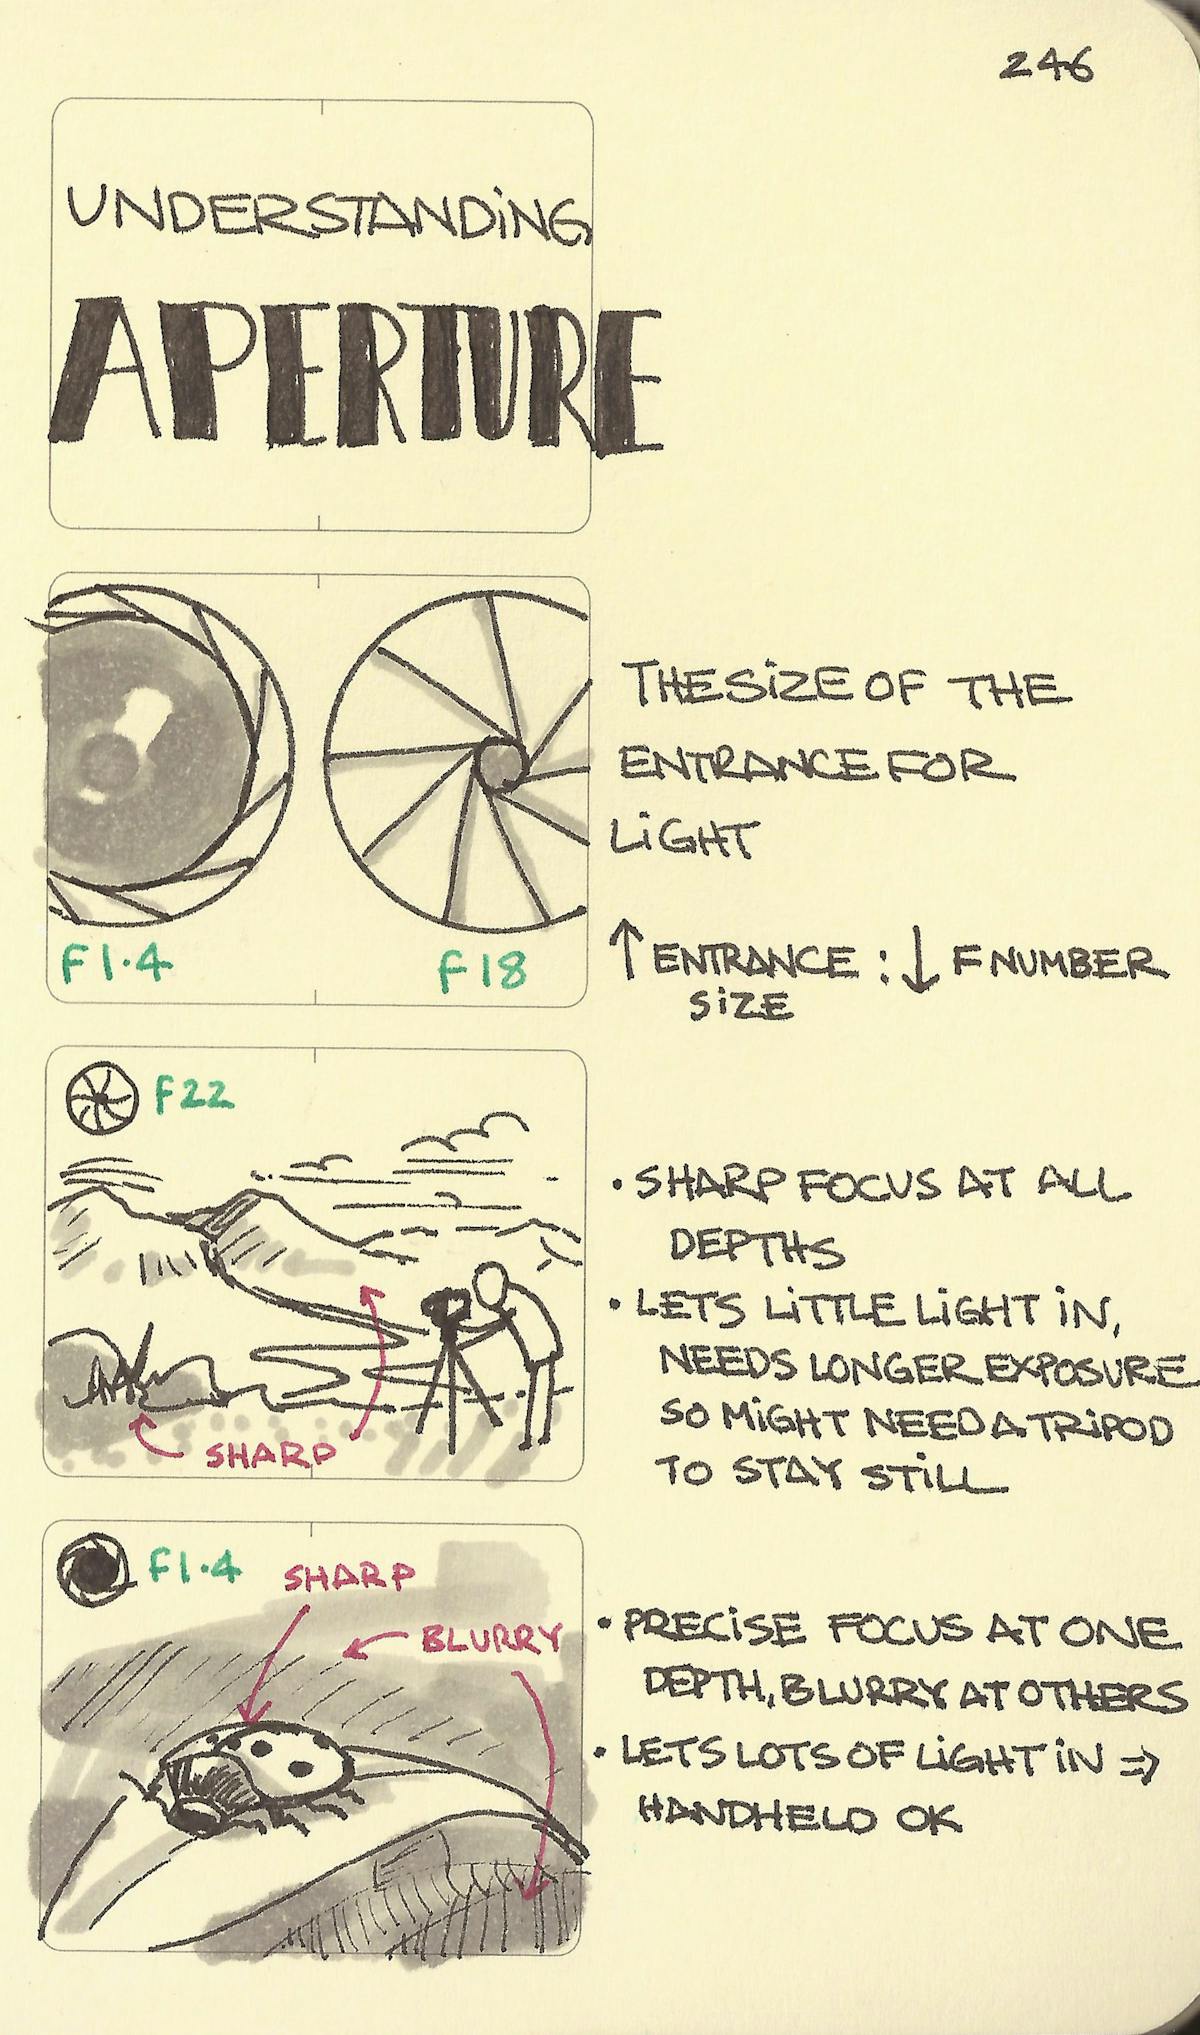 246
UNDERSTANDING
APERTURE
F1.4
F18
THE SIZE OF THE
ENTRANCE FOR
LIGHT
↑ ENTRANCE : ↓ F NUMBER
SIZE
F22
SHARP
• SHARP FOCUS AT ALL
DEPTHS
• LETS LITTLE LIGHT IN,
NEEDS LONGER EXPOSURE
SO MIGHT NEED A TRIPOD
TO STAY STILL
F1.4
SHARP
BLURRY
• PRECISE FOCUS AT ONE
DEPTH, BLURRY AT OTHERS
• LETS LOTS OF LIGHT IN ⇒
HANDHELD OK